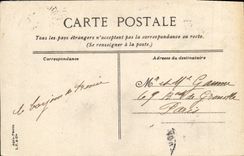 CARTE POSTALE
Tous les pays étrangers n'acceptent pas la correspondance au recto.
(Se renseigner à la poste.)
Correspondance
Adresse du destinataire
le bonjour de
Mr et Mme
69 Bd de Grenelle
Paris